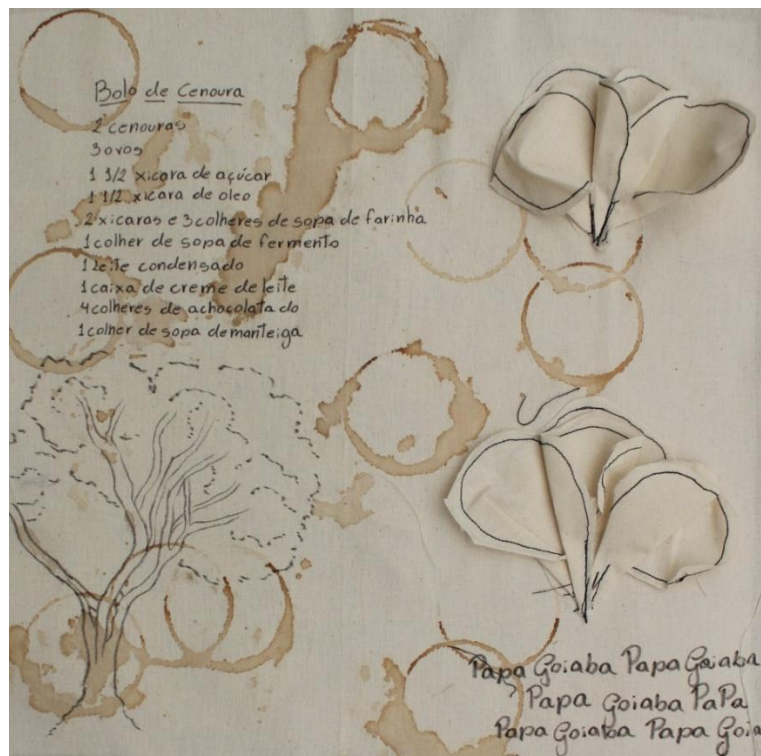 Bolo de Cenoura
2 cenouras
3 ovos
1 1/2 xicara de açúcar
1 1/2 xicara de oleo
2 xicaras e 3 colheres de sopa de farinha
1 colher de sopa de fermento
1 Leite condensado
1 caixa de creme de leite
4 colheres de achocolatado
1 colher de sopa de manteiga
Papa Goiaba Papa Goiaba
Papa Goiaba PaPa
Papa Goiaba Papa Goia